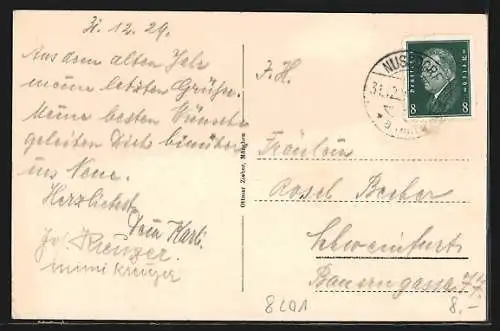 31. 12. 29.
Aus dem alten Jahr
meine letzten Grüße.
Meine besten Wünsche
geleiten Dich hinüber
ins Neue.
Herzlichst
Dein Karli.
Kreuzer.
mimi Kreuzer
Ottmar Zieher, München
F. H.
Fräulein
Rosel Becher
Schweinfurt
Bauerngasse 77
NUSSDORF
31.12.
Deutsches Reich
8 8
8201
8.-